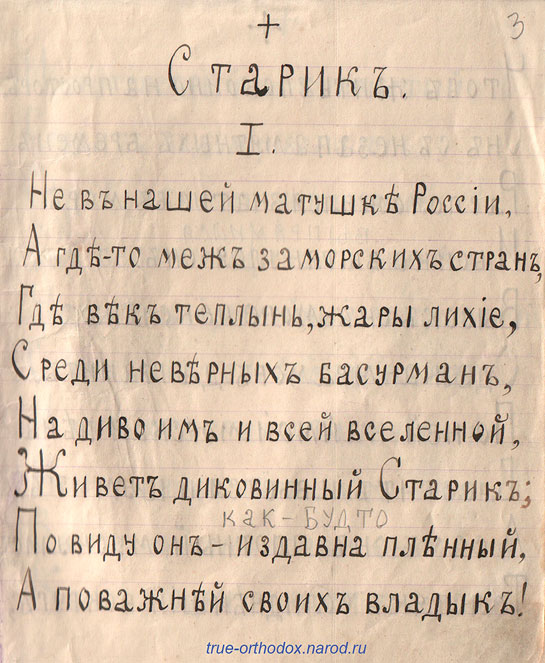 +
3
Старикъ.
I.
Не въ нашей матушкѣ Россіи,
А гдѣ-то межъ заморскихъ странъ,
Гдѣ вѣкъ теплынь, жары лихіе,
Среди невѣрныхъ басурманъ,
На диво имъ и всей вселенной,
Живетъ диковинный Старикъ;
как-будто
По виду онъ – издавна плѣнный,
А поважнѣй своихъ владыкъ!
true-orthodox.narod.ru